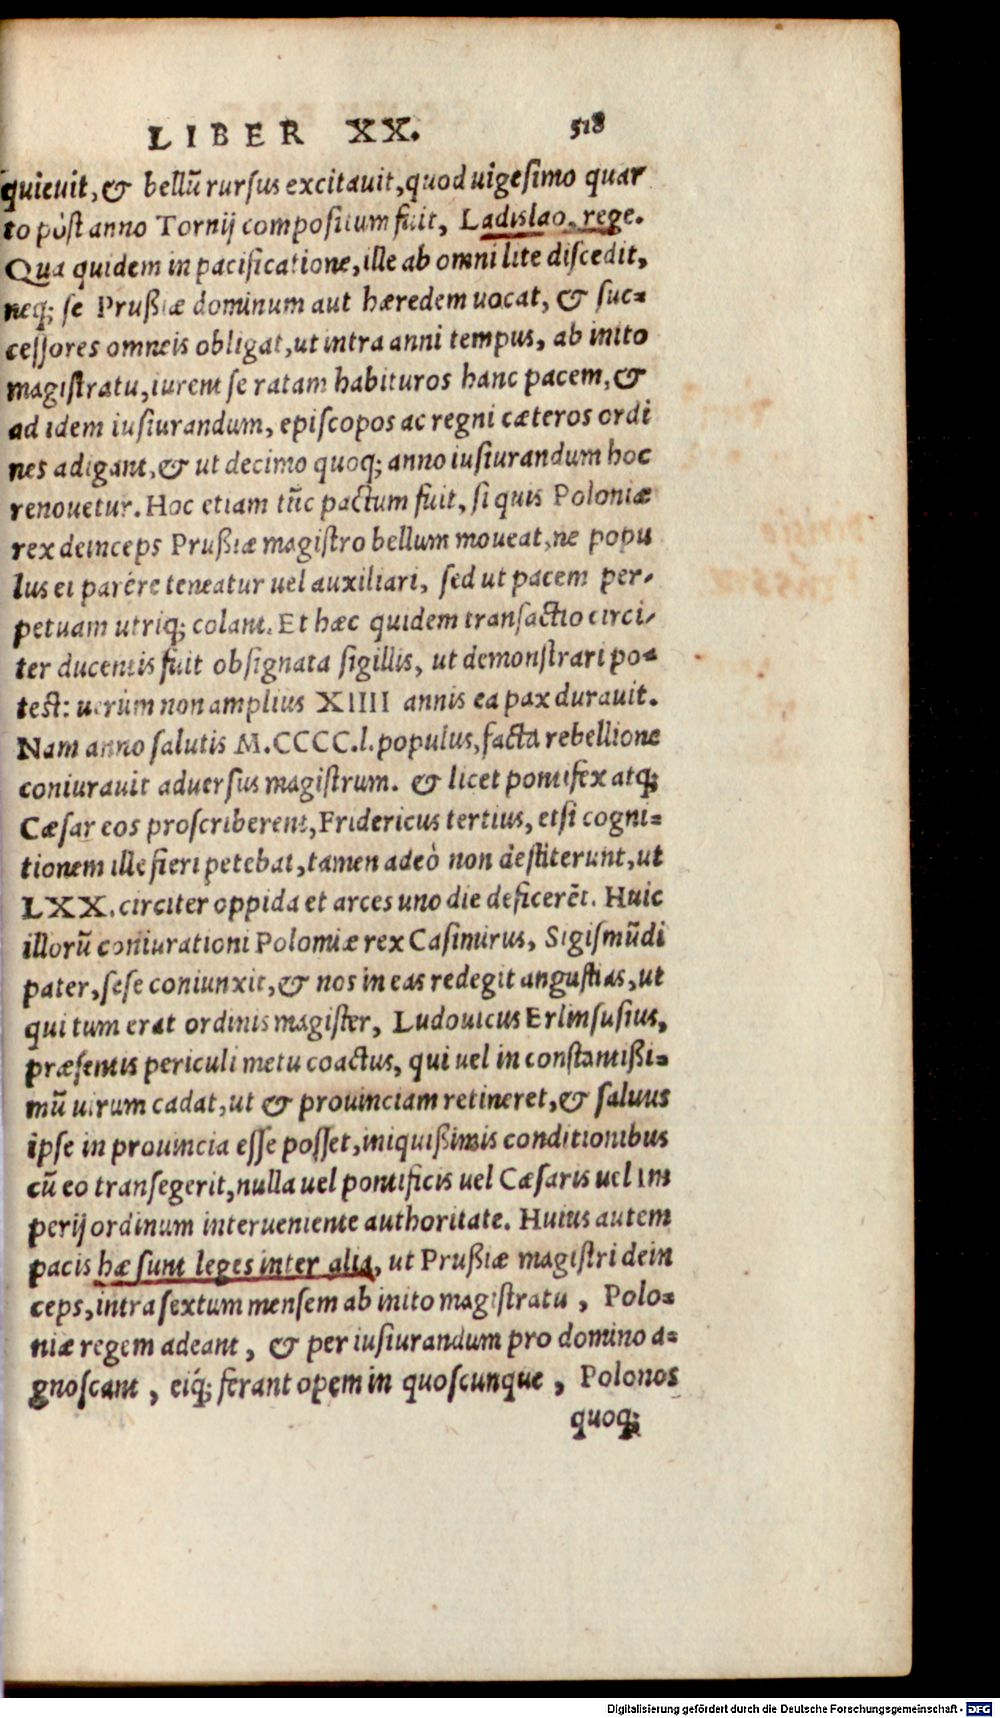 LIBER XX. 518
quieuit, & bellũ rursus excitauit, quod uigesimo quar
to pòst anno Tornij compositum fuit, Ladislao rege.
Qua quidem in pacificatione, ille ab omni lite discedit,
neq; se Prußiæ dominum aut hæredem uocat, & suc=
cessores omneis obligat, ut intra anni tempus, ab inito
magistratu, iurent se ratam habituros hanc pacem, &
ad idem iusiurandum, episcopos ac regni cæteros ordi
nes adigant, & ut decimo quoq; anno iusiurandum hoc
renouetur. Hoc etiam tũc pactum fuit, si quis Poloniæ
rex deinceps Prußiæ magistro bellum moueat, ne popu
lus ei parêre teneatur uel auxiliari, sed ut pacem per-
petuam utriq; colant. Et hæc quidem transactio circi-
ter ducentis fuit obsignata sigillis, ut demonstrari po=
test: uerùm non amplius XIIII annis ea pax durauit.
Nam anno salutis M.CCCC.l. populus, facta rebellione
coniurauit aduersus magistrum. & licet pontifex atq;
Cæsar eos proscriberent, Fridericus tertius, etsi cogni=
tionem ille fieri petebat, tamen adeò non destiterunt, ut
LXX. circiter oppida et arces uno die deficerẽt. Huic
illorũ coniurationi Poloniæ rex Casimirus, Sigismũdi
pater, sese coniunxit, & nos in eas redegit angustias, ut
qui tum erat ordinis magister, Ludouicus Erlinsusius,
præsentis periculi metu coactus, qui uel in constantißi=
mũ uirum cadat, ut & prouinciam retineret, & saluus
ipse in prouincia esse posset, iniquißimis conditionibus
cũ eo transegerit, nulla uel pontificis uel Cæsaris uel im
perij ordinum interueniente authoritate. Huius autem
pacis hæ sunt leges inter alia, ut Prußiæ magistri dein
ceps, intra sextum mensem ab inito magistratu, Polo=
niæ regem adeant, & per iusiurandum pro domino a=
gnoscant, eiq́; ferant opem in quoscunque, Polonos
quoq;
Digitalisierung gefördert durch die Deutsche Forschungsgemeinschaft - DFG